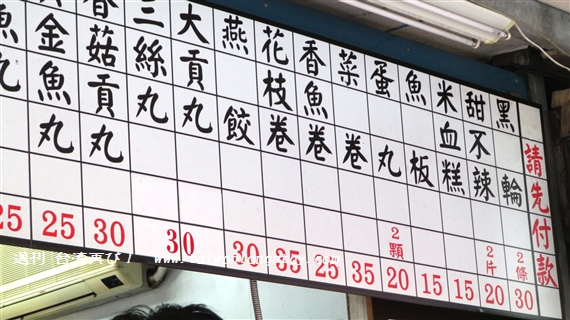 請先付款
黑輪 2條 30
甜不辣 2片 20
米血糕 15
魚板 15
蛋丸 2顆 20
菜卷 35
香魚卷 25
花枝卷 35
燕餃 30
大貢丸
三絲丸 30
香菇貢丸 30
金魚丸 25
魚丸 25
週刊 台湾再び！